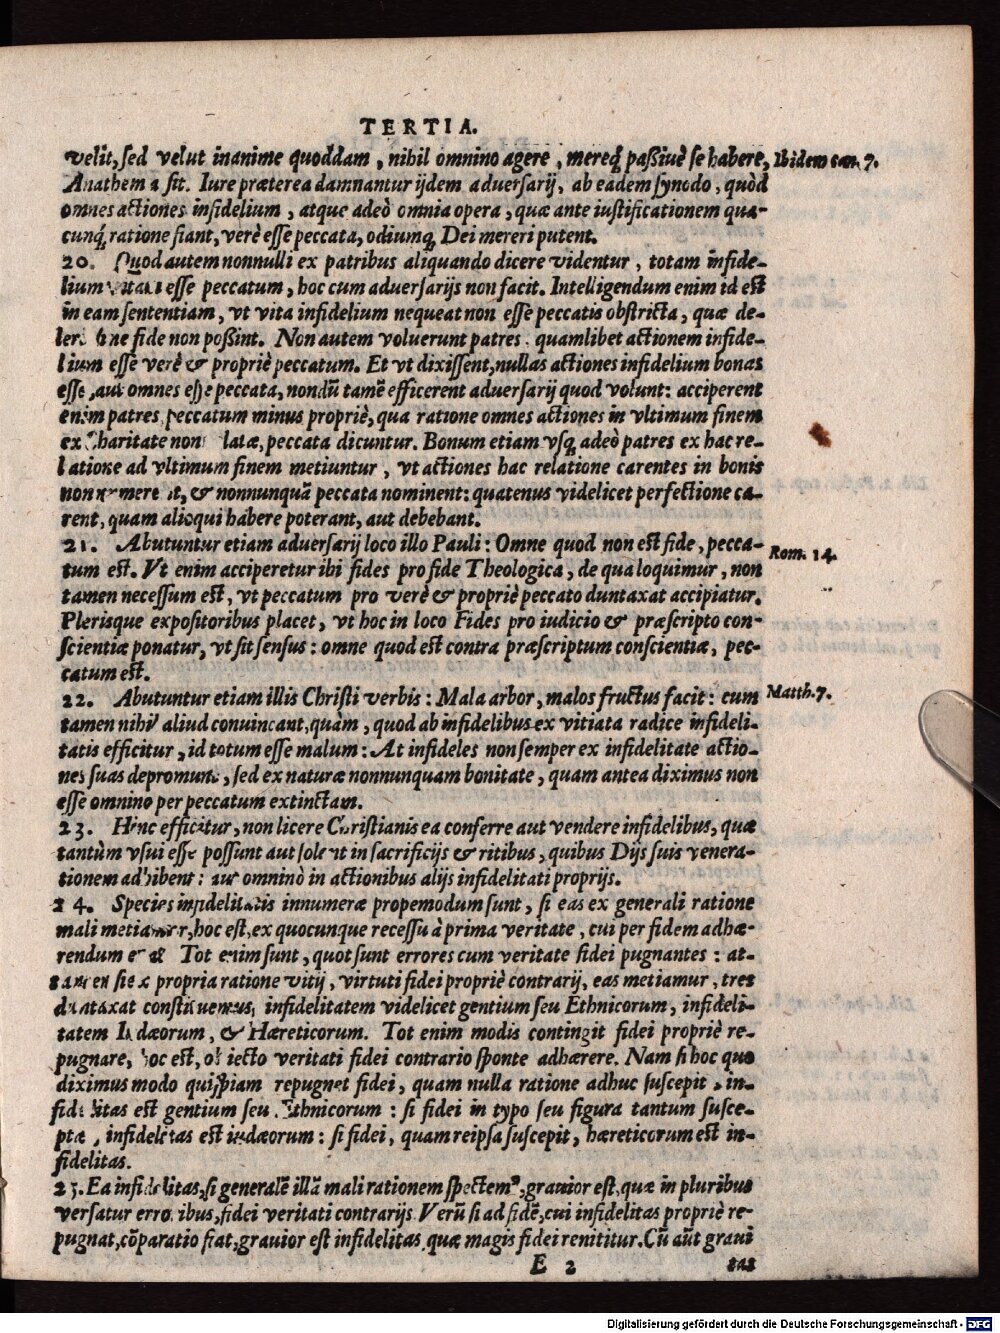 TERTIA.
velit, sed velut inanime quoddam, nihil omnino agere, mereq́ paßiuè se habere, Ibidem can. 7.
Anathema sit. Iure præterea damnantur ijdem aduersarij, ab eadem synodo, quòd
omnes actiones infidelium, atque adeò omnia opera, quæ ante iustificationem qua-
cunq́ ratione fiant, verè esse peccata, odiumq́ Dei mereri putent.
20. Quod autem nonnulli ex patribus aliquando dicere videntur, totam infide-
lium vitam esse peccatum, hoc cum aduersarijs non facit. Intelligendum enim id est
in eam sententiam, vt vita infidelium nequeat non esse peccatis obstricta, quæ de-
leri sine fide non poßint. Non autem voluerunt patres quamlibet actionem infide-
lium esse verè & propriè peccatum. Et vt dixissent, nullas actiones infidelium bonas
esse, aut omnes esse peccata, nondū tamē efficerent aduersarij quod volunt: acciperent
enim patres peccatum minus propriè, qua ratione omnes actiones in vltimum finem
ex Charitate non latæ, peccata dicuntur. Bonum etiam vsq́ adeò patres ex hac re-
latione ad vltimum finem metiuntur, vt actiones hac relatione carentes in bonis
non numerent, & nonnunquā peccata nominent: quatenus videlicet perfectione ca-
rent, quam alioqui habere poterant, aut debebant.
21. Abutuntur etiam aduersarij loco illo Pauli: Omne quod non est fide, pecca- Rom. 14.
tum est. Vt enim acciperetur ibi fides pro fide Theologica, de qua loquimur, non
tamen necessum est, vt peccatum pro verè & propriè peccato duntaxat accipiatur.
Plerisque expositoribus placet, vt hoc in loco Fides pro iudicio & præscripto con-
scientiæ ponatur, vt sit sensus: omne quod est contra præscriptum conscientiæ, pec-
catum est.
22. Abutuntur etiam illis Christi verbis: Mala arbor, malos fructus facit: cum Matth. 7.
tamen nihil aliud conuincant, quàm, quod ab infidelibus ex vitiata radice infideli-
tatis efficitur, id totum esse malum: At infideles non semper ex infidelitate actio-
nes suas depromunt, sed ex naturæ nonnunquam bonitate, quam antea diximus non
esse omnino per peccatum extinctam.
23. Hinc efficitur, non licere Christianis ea conferre aut vendere infidelibus, quæ
tantùm vsui esse possunt aut solent in sacrificijs & ritibus, quibus Dijs suis venera-
tionem adhibent: aut omninò in actionibus alijs infidelitati proprijs.
24. Species infidelitatis innumeræ propemodum sunt, si eas ex generali ratione
mali metiamur, hoc est, ex quocunque recessu à prima veritate, cui per fidem adhæ-
rendum erat. Tot enim sunt, quot sunt errores cum veritate fidei pugnantes: at-
tamen si ex propria ratione vitij, virtuti fidei propriè contrarij, eas metiamur, tres
duntaxat constituemus, infidelitatem videlicet gentium seu Ethnicorum, infideli-
tatem Iudæorum, & Hæreticorum. Tot enim modis contingit fidei propriè re-
pugnare, hoc est, obiecto veritati fidei contrario sponte adhærere. Nam si hoc quo
diximus modo quispiam repugnet fidei, quam nulla ratione adhuc suscepit, in-
fidelitas est gentium seu Ethnicorum: si fidei in typo seu figura tantum susce-
ptæ, infidelitas est iudæorum: si fidei, quam reipsa suscepit, hæreticorum est in-
fidelitas.
25. Ea infidelitas, si generalē illā mali rationem spectem⁹, grauior est, quæ in pluribus
versatur erroribus, fidei veritati contrarijs. Verū si ad fidē, cui infidelitas propriè re-
pugnat, cōparatio fiat, grauior est infidelitas, quæ magis fidei renititur. Cū aūt graui
E 2 tas
Digitalisierung gefördert durch die Deutsche Forschungsgemeinschaft - DFG